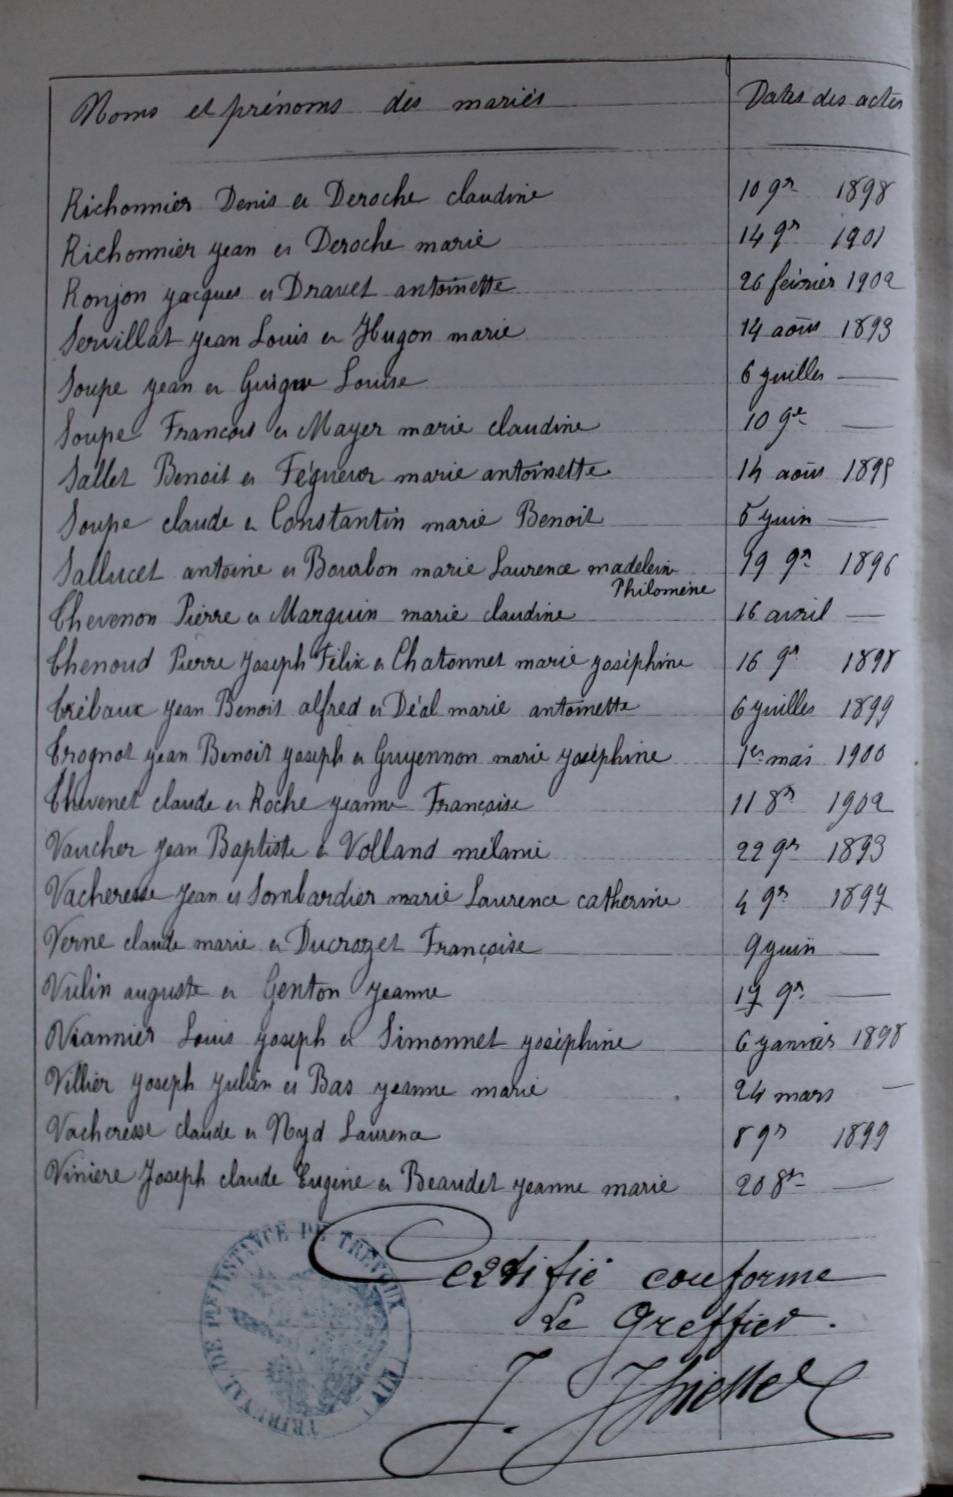 Noms et prénoms des mariés Dates des actes
Richonnier Denis et Deroche claudine 10 9bre 1898
Richonnier jean et Deroche marie 14 9bre 1901
Ronjon jacques et Dravet antoinette 26 février 1902
Servillat jean Louis et Hugon marie 14 août 1893
Soupe jean et Guigue Louise 6 juillet —
Soupe François et Mayer marie claudine 10 9bre —
Sallet Benoit et marie antoinette 14 août 1895
Soupe claude et Constantin marie Benoit 5 juin —
Sallucet antoine et Bourbon marie Laurence madelein 19 9bre 1896
Philomène
Thevenon Pierre et Marguin marie claudine 16 avril —
Thenoud Pierre Joseph Félix et Chatonnet marie joséphine 16 9bre 1898
Trébaux jean Benoit alfred et Déal marie antoinette 6 juillet 1899
Trognot jean Benoit joseph et Guyennon marie joséphine 1er mai 1900
Thevenet claude et Roche jeanne Françoise 11 8bre 1902
Vaucher jean Baptiste et Volland mélanie 22 9bre 1893
Vacheresse jean et Lombardier marie Laurence catherine 4 9bre 1897
Verne claude marie et Ducrozet Françoise 9 juin —
Vulin auguste et Genton jeanne 17 9bre —
Viannier Louis joseph et Simonnet joséphine 6 janvier 1898
Villier joseph julien et Bas jeanne marie 24 mars —
Vacheresse claude et Nyd Laurence 8 9bre 1899
Vinière Joseph claude Eugène et Beaudet jeanne marie 20 8bre —
Certifié conforme
Le Greffier.
TRIBUNAL DE PRE INSTANCE DE TREVOUX (AIN)